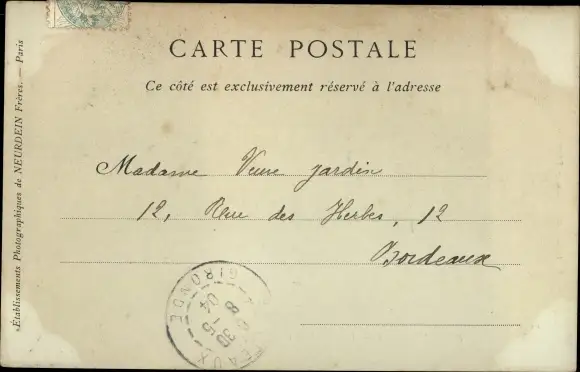 CARTE POSTALE
Ce côté est exclusivement réservé à l'adresse
Madame Veuve Jardin
12, Rue des Herbes, 12
Bordeaux
Établissements Photographiques de NEURDEIN Frères. — Paris
GIRONDE
8 30
1-5
04